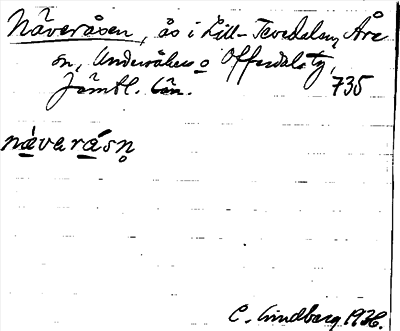 Näveråsen, ås i Lill-Tevedalen, Åre
sn, Undersåkers o Offerdals tg,
Jämtl. län. 735
näveråsn̥
C. Lindberg 1936.